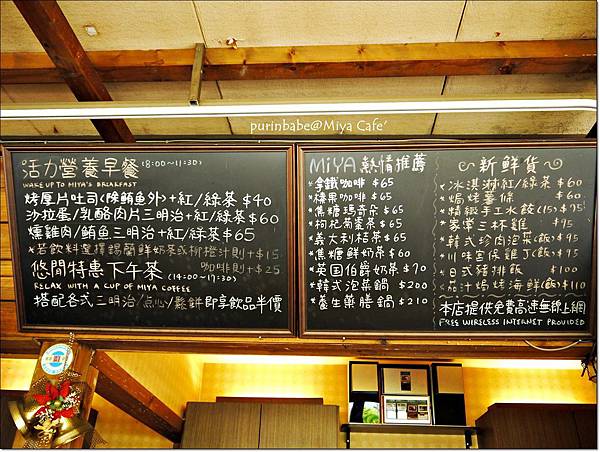 purinbabe@Miya Cafe'
活力營養早餐 (8:00~11:30)
WAKE UP TO MIYA'S BREAKFAST
烤厚片吐司(除鮪魚外)+紅/綠茶 $40
沙拉蛋/乳酪肉片三明治+紅/綠茶 $60
燻雞肉/鮪魚三明治+紅/綠茶 $65
*若飲料選擇錫蘭鮮奶茶或柳橙汁則+$15
咖啡則+$25
悠閒特惠下午茶 (14:00~17:30)
RELAX WITH A CUP OF MIYA COFFEE
搭配各式三明治/點心/鬆餅即享飲品半價
MiYA 熱情推薦
*拿鐵咖啡 $65
*榛果咖啡 $65
*焦糖瑪奇朵 $65
*枸杞菊棗茶 $65
*義大利桔茶 $65
*焦糖鮮奶茶 $60
*英國伯爵奶茶 $70
*韓式泡菜鍋 $200
*養生藥膳鍋 $210
新鮮貨
*冰淇淋紅/綠茶 $60
*焗烤薯條 $60
*精緻手工水餃(15) $75
*家常三杯雞 $95
*韓式珍肉泡菜(飯) $95
*川味宮保雞丁(飯) $95
*日式豬排飯 $100
*茄汁焗烤海鮮(飯) $110
本店提供免費高速無線上網
FREE WIRELESS INTERNET PROVIDED